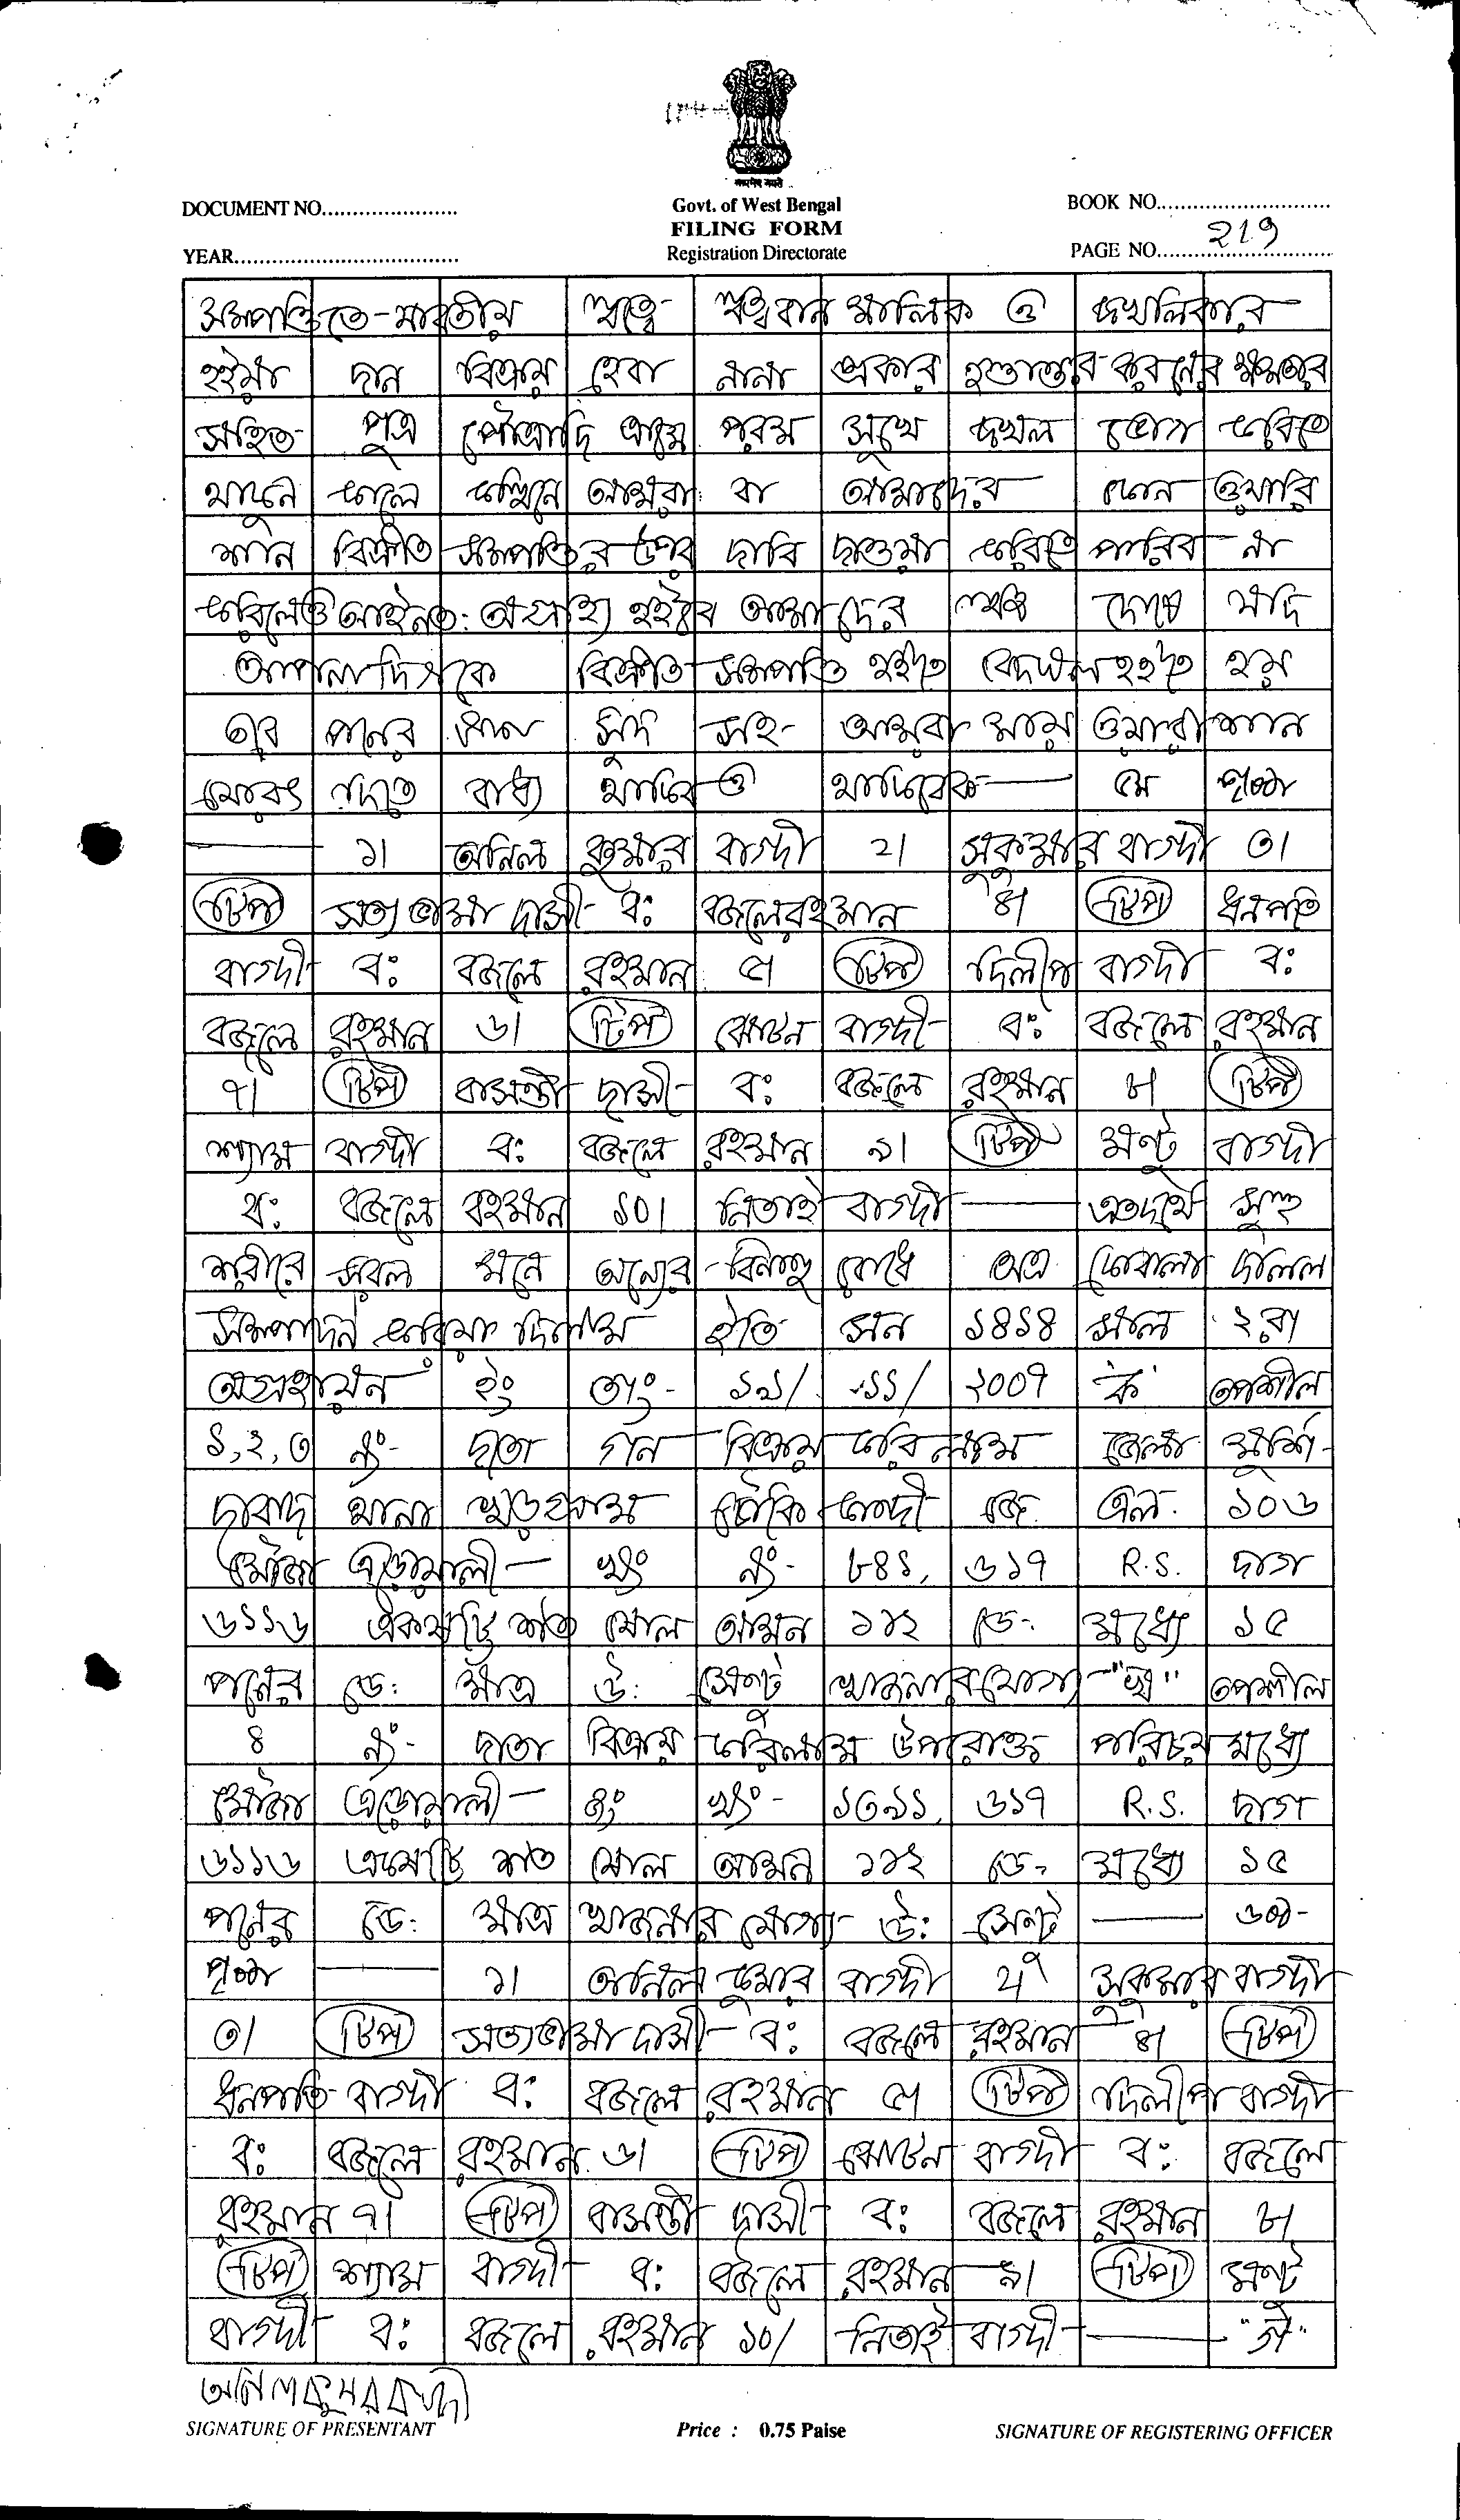 DOCUMENT NO.......................
Govt. of West Bengal
BOOK NO.............................
FILING FORM
YEAR...................................
Registration Directorate
PAGE NO. 219
সম্পত্তিতে যাবতীয় স্বত্বে স্বত্ববান মালিক ও দখলিকার
হইয়া দান বিক্রয় হেবা নানা প্রকার হস্তান্তর করনের ক্ষমতার
সহিত পুত্র পৌত্রাদি ক্রমে পরম সুখে দখল ভোগ করিতে
থাকুন কালে কস্মিনে আমরা বা আমাদের কোন ওয়ারি
শান বিক্রীত সম্পত্তির উপর দাবি দাওয়া করিতে পারিব না
করিলেও আইনত: অগ্রাহ্য হইবে আমাদের দোষে যদি
আপনাদিগকে বিক্রীত সম্পত্তি হইতে বেদখল হইতে হয়
তবে পনের সুদ সহ আমরা মায় ওয়ারীশান
বাধ্য থাকিব ও থাকিবেক— ৫ম পৃষ্ঠা
— ১। অনিল কুমার বাগ্দী ২। সুকুমার বাগ্দী ৩।
টিপ সত্যভামা দাসী ব: বজলে রহমান ৪। টিপ ধনপতি
বাগ্দী ব: বজলে রহমান ৫। টিপ দিলীপ বাগ্দী ব:
বজলে রহমান ৬। টিপ বাগ্দী ব: বজলে রহমান
৭। টিপ বাসন্তী দাসী ব: বজলে রহমান ৮। টিপ
শ্যাম বাগ্দী ব: বজলে রহমান ৯। টিপ মন্টু বাগ্দী
ব: বজলে রহমান ১০। নিতাই বাগ্দী — এতদর্থে সুস্থ
শরীরে সরল মনে অন্যের বিনানু রোধে অত্র কোবালা দলিল
সম্পাদন করিয়া দিলাম ইতি সন ১৪১৪ সাল ২রা
অগ্রহায়ন ইং তাং- ১৯/১১/২০০৭ "ক" তপশীল
১,২,৩ নং- দাতা গন বিক্রয় করিলাম জেলা মুর্শি-
দাবাদ থানা খড়গ্রাম চৌকি কান্দী জে. এল. ১০৬
মৌজা এড়োয়ালী- খং নং- ৮৪১, ৬১৭ R.S. দাগ
৬১১৬ একষট্টি শত ষোল আমন ১৪২ ডে: মধ্যে ১৫
পনের ডে: মাত্র উ: সেন্টু খাজনার যোগ্য "খ" তপশীল
৪ নং- দাতা বিক্রয় করিলাম উপরোক্ত পরিচয় মধ্যে
মৌজা এড়োয়ালী- খং- ১৩৯১, ৬১৭ R.S. দাগ
৬১১৬ একষট্টি শত ষোল আমন ১৪২ ডে: মধ্যে ১৫
পনের ডে: মাত্র খাজনার যোগ্য উ: সেন্টু — ৬ষ্ঠ-
পৃষ্ঠা — ১। অনিল কুমার বাগ্দী ২। সুকুমার বাগ্দী
৩। টিপ সত্যভামা দাসী- ব: বজলে রহমান ৪। টিপ
ধনপতি বাগ্দী ব: বজলে রহমান ৫। টিপ দিলীপ বাগ্দী
ব: বজলে রহমান ৬। টিপ বাগ্দী ব: বজলে
রহমান ৭। টিপ বাসন্তী দাসী- ব: বজলে রহমান ৮।
টিপ শ্যাম বাগ্দী- ব: বজলে রহমান ৯। টিপ মন্টু
বাগ্দী- ব: বজলে রহমান ১০। নিতাই বাগ্দী — "গ"
অনিল কুমার বাগ্দী
SIGNATURE OF PRESENTANT
Price : 0.75 Paise
SIGNATURE OF REGISTERING OFFICER